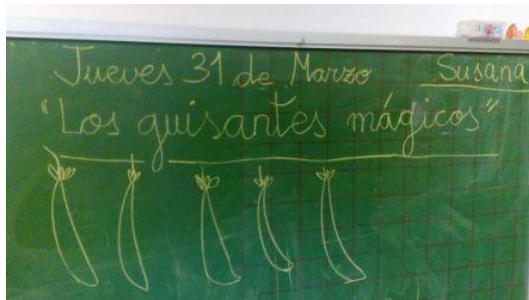 Jueves 31 de Marzo Susana
"Los guisantes mágicos"